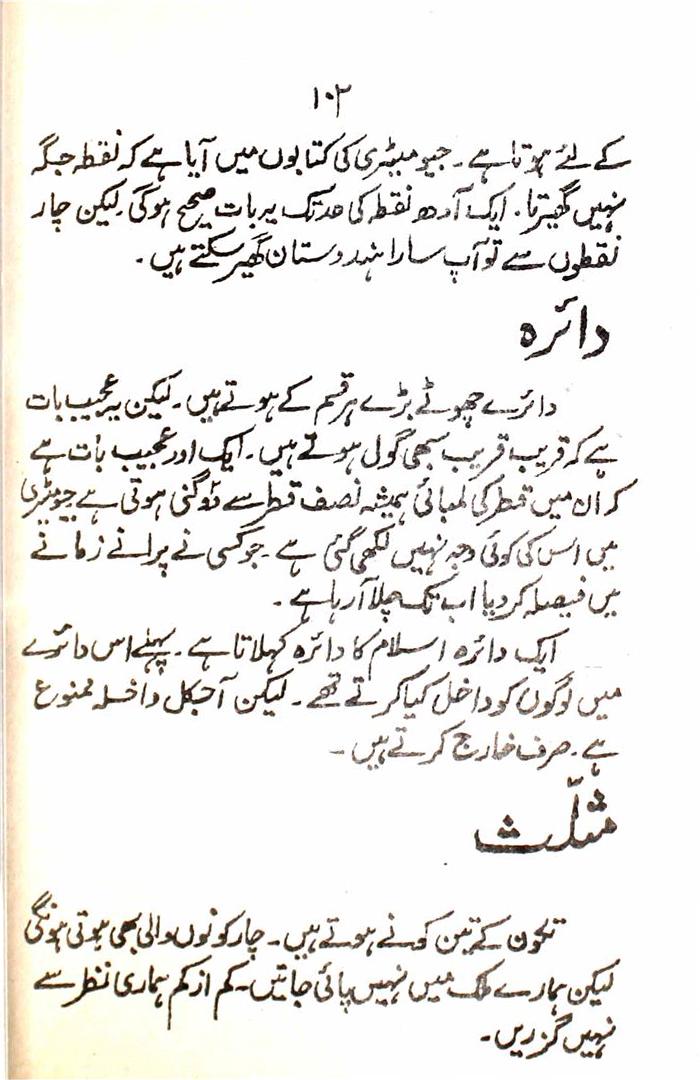 ۱۰۲
کے لئے ہوتا ہے۔ جیومیٹری کی کتابوں میں آیا ہے کہ نقطہ جگہ
نہیں گھیرتا۔ ایک آدھ نقطہ کی حد تک یہ بات صحیح ہوگی۔ لیکن چار
نقطوں سے تو آپ سارا ہندوستان گھیر سکتے ہیں۔
دائرہ
دائرے چھوٹے بڑے ہر قسم کے ہوتے ہیں۔ لیکن یہ عجیب بات
ہے کہ قریب قریب سبھی گول ہوتے ہیں۔ ایک اور عجیب بات ہے
کہ ان میں قطر کی لمبائی ہمیشہ نصف قطر سے دُوگنی ہوتی ہے جیومیٹری
میں اس کی کوئی وجہ نہیں لکھی گئی ہے۔ جو کسی نے پرانے زمانے
میں فیصلہ کر دیا اب تک چلا آ رہا ہے۔
ایک دائرہ اسلام کا دائرہ کہلاتا ہے۔ پہلے اس دائرے
میں لوگوں کو داخل کیا کرتے تھے۔ لیکن آجکل داخلہ ممنوع
ہے۔ صرف خارج کرتے ہیں۔
مثلّث
تکون کے تین کونے ہوتے ہیں۔ چار کونوں والی بھی ہوتی ہونگی
لیکن ہمارے ملک میں نہیں پائی جاتیں۔ کم از کم ہماری نظر سے
نہیں گزریں۔